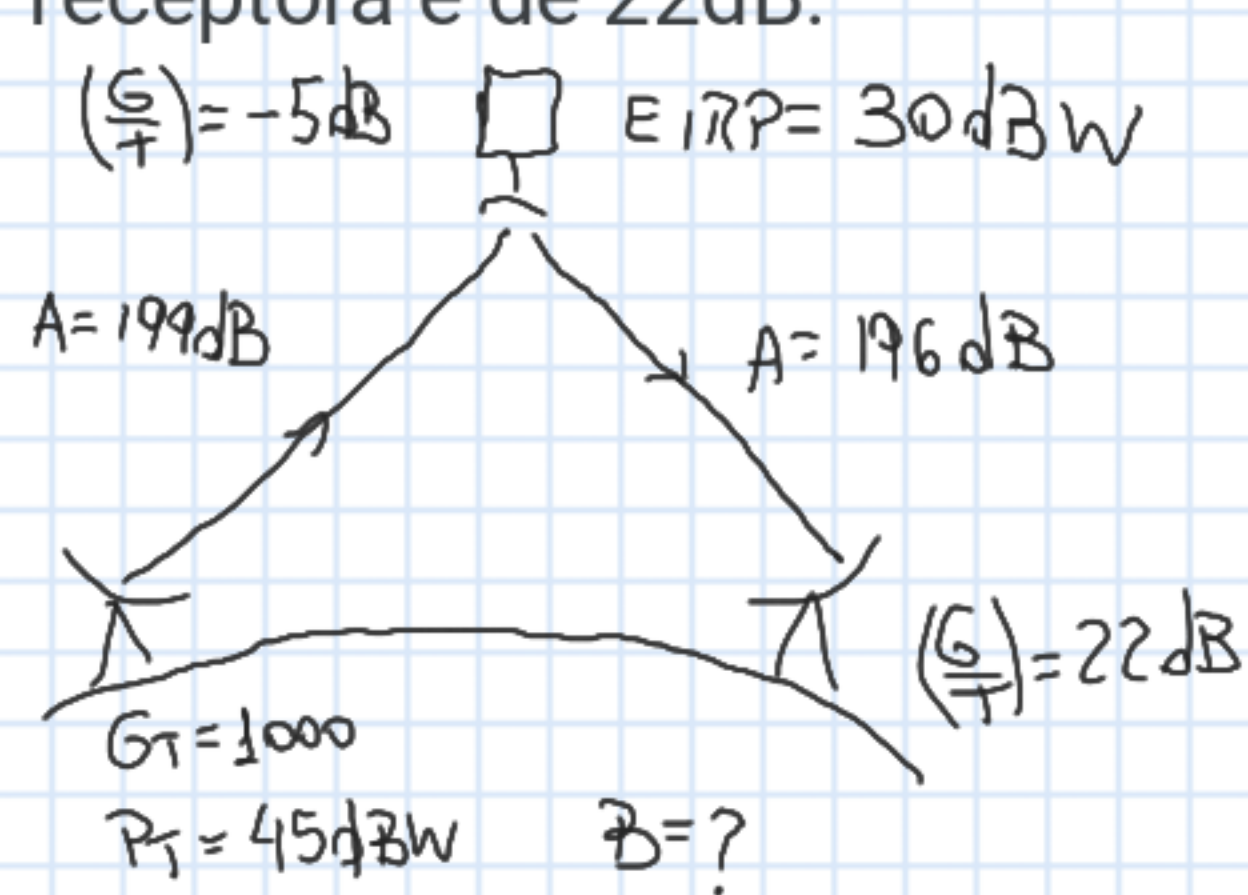 receptora é de 22dB.
(G/T) = -5dB EIRP= 30dBW
A= 199dB
A= 196dB
(G/T) = 22dB
GT = 1000
PT = 45dBW B=?